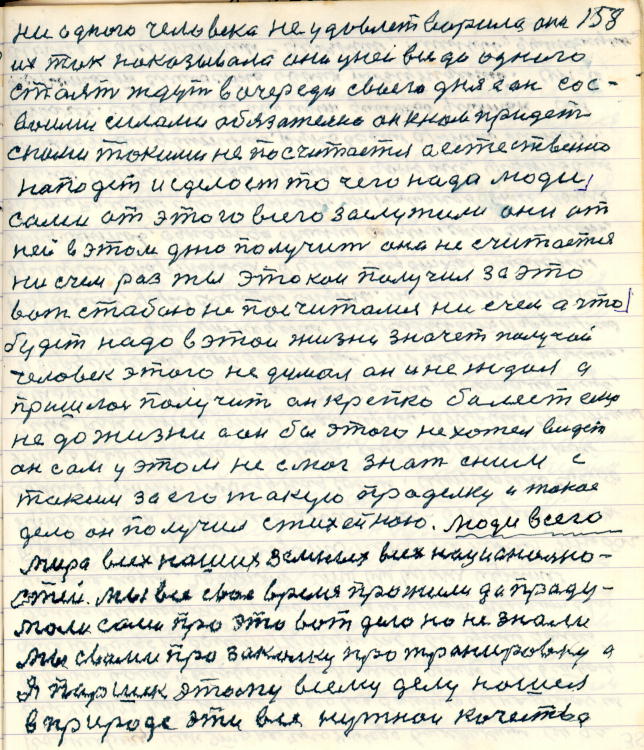 ни одного человека не удовлетворила она 158
их так показывала они у ней все до одного
стоят ждут в очереди своего дня а он сос-
воими силами обязательно он к нам придет
с нами такими не посчитается а естественно
нападет и сделает то чего нада люди
сами от этого всего заслужили они от
ней в этом дню получит она не считается
ни с чем раз ты это кои получил за это
вот с табою не посчитался ни с чем а что
будет надо в этои жизни значет получай
человек этого не думал он и не ждал а
пришлои получит он крепко балеет ему
не до жизни а он бы этого не хотел видет
он сам у этом не смог знат с ним с
таким за его такую проделку и такое
дело он получил стихейною. Люди всего
мира всех наших земных всех национально-
стей. Мы все свое время прожили да праду-
мали сами про это вот дело но не знали
мы с вами про закалку про транировку а
я паршек этому всему делу нашел
в природе эти все нужнои качества